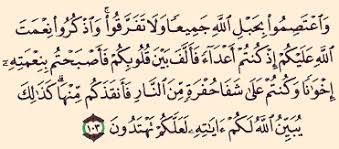 وَٱعۡتَصِمُواْ بِحَبۡلِ ٱللَّهِ جَمِيعٗا وَلَا تَفَرَّقُواْۚ وَٱذۡكُرُواْ نِعۡمَتَ
ٱللَّهِ عَلَيۡكُمۡ إِذۡ كُنتُمۡ أَعۡدَآءٗ فَأَلَّفَ بَيۡنَ قُلُوبِكُمۡ فَأَصۡبَحۡتُم بِنِعۡمَتِهِۦٓ
إِخۡوَٰنٗا وَكُنتُمۡ عَلَىٰ شَفَا حُفۡرَةٖ مِّنَ ٱلنَّارِ فَأَنقَذَكُم مِّنۡهَاۗ كَذَٰلِكَ
يُبَيِّنُ ٱللَّهُ لَكُمۡ ءَايَٰتِهِۦ لَعَلَّكُمۡ تَهۡتَدُونَ ١٠٣